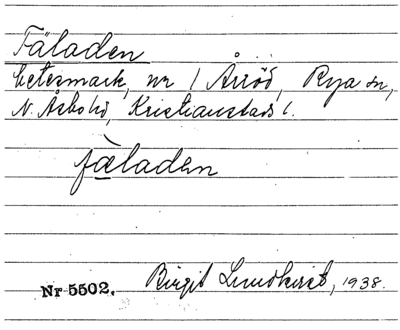 Fäladen
betesmark, nr 1 Årröd, Rya sn,
N. Åsbo hd, Kristianstads l.
fæ̀laden
Nr 5502. Birgit Lundkvist, 1938.